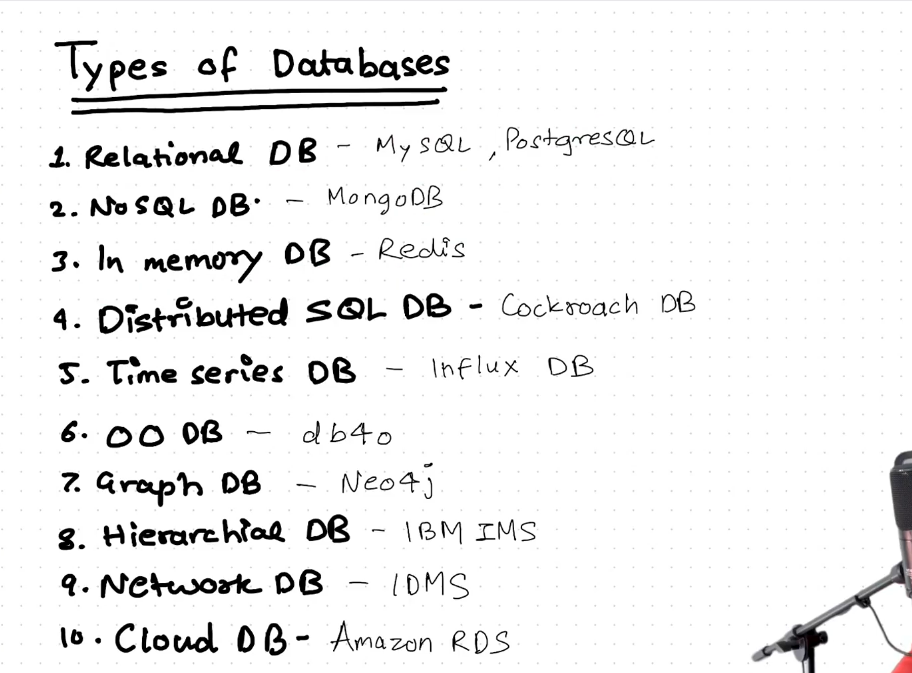 Types of Databases
1. Relational DB - MySQL, PostgresQL
2. NoSQL DB. - MongoDB
3. In memory DB - Redis
4. Distributed SQL DB - Cockroach DB
5. Time series DB - Influx DB
6. OO DB - db4o
7. Graph DB - Neo4j
8. Hierarchial DB - IBM IMS
9. Network DB - IDMS
10. Cloud DB - Amazon RDS